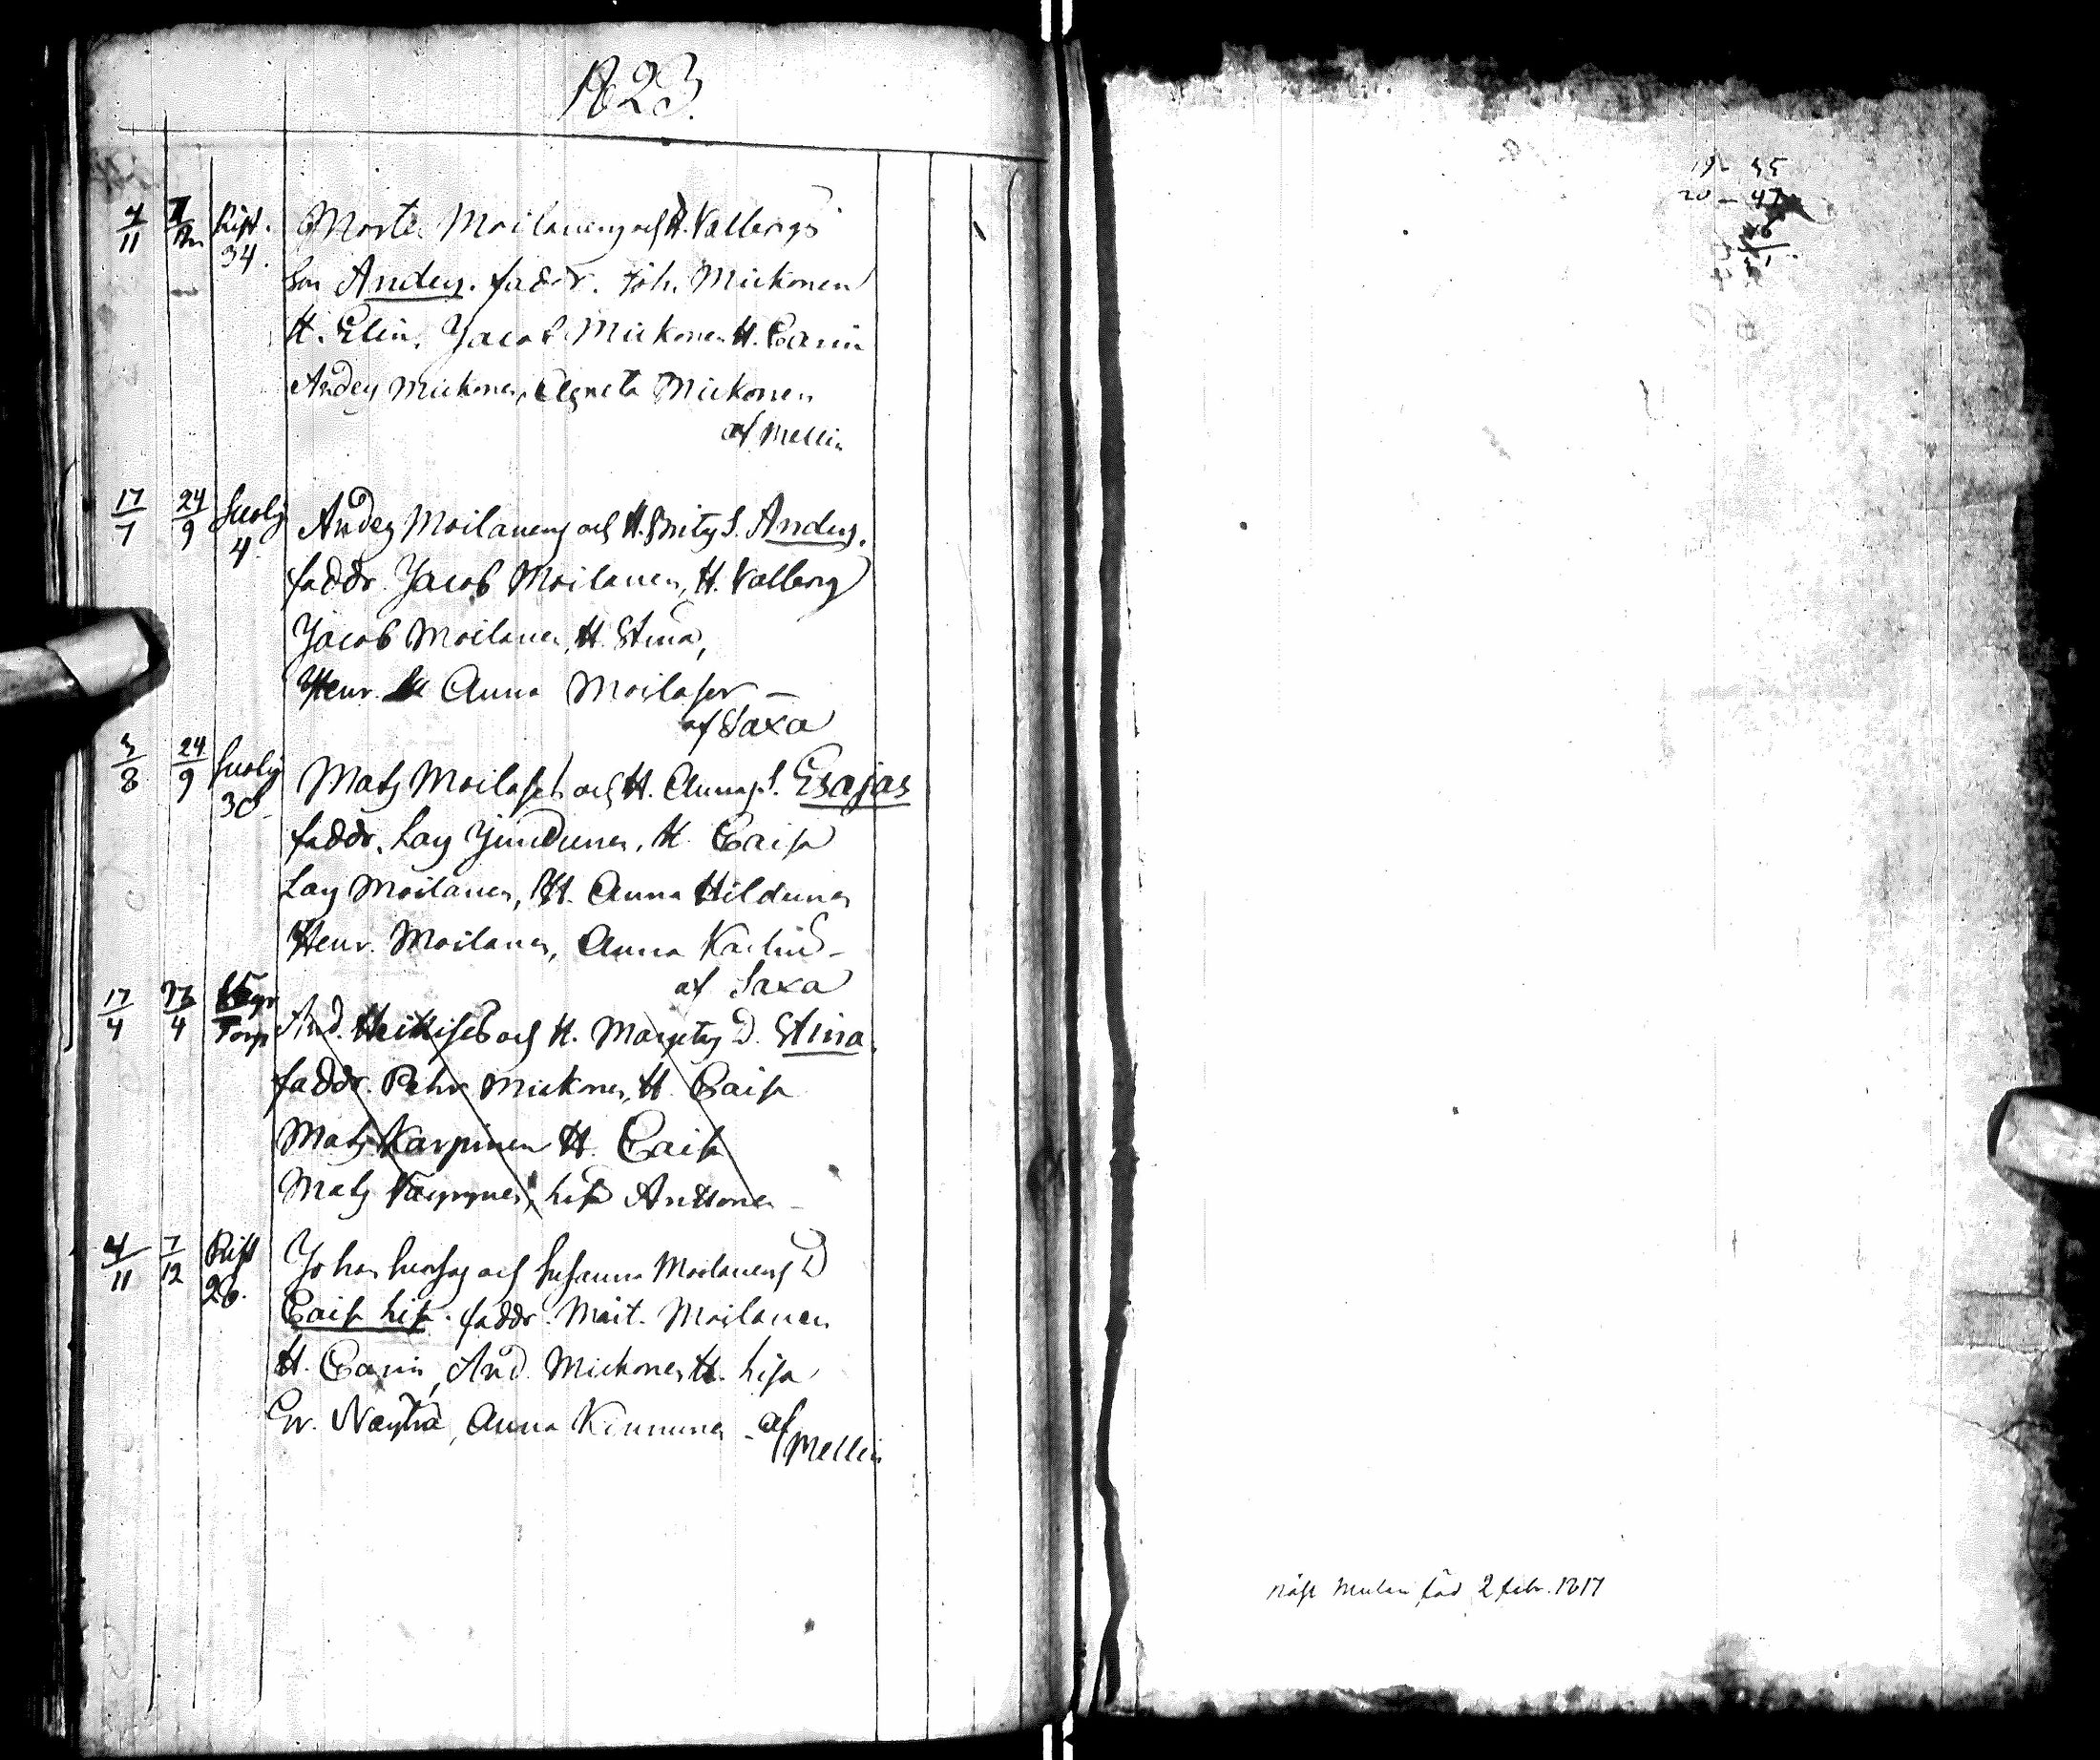 1823.
4/11 7/12 Rist. 34. Morte Moilanens och H. Valborgs
Son Anders. faddr. Joh. Mickonen
H. Elin, Jacob Mickonen H. Carin
Anders Mickonen, Agneta Mickonen
af Mellin
17/7 24/9 4. Anders Moilanens och H. Britas S. Anders.
faddr. Jacob Moilanen, H. Valborg
Jacob Moilanen, H. Stina,
Henr. Anna Moilaser —
af Saxa
5/8 24/9 30. Mats Moilases och H. Annas S. Esajas
faddr. Lars H. Caisa
Lars Moilanen, H. Anna Hildunen
Henr. Moilanen, Anna
af Saxa
17/4 4 Torp And. och H. Margetas D. Stina.
faddr. Pehr Mickonen, H. Caisa
Mats Karpinen H. Caisa
Mats Lisa Anttonen
4/11 7/12 Rist 26. Johan och Susanna Moilanens D
Caisa Lisa. faddr. Mårt. Moilanen
H. Carin, And. Mickonen H. Lisa
Er. Anna Kinnunen - af
Mellin
19 - 55
20 - 47
föd 2 febr. 1817